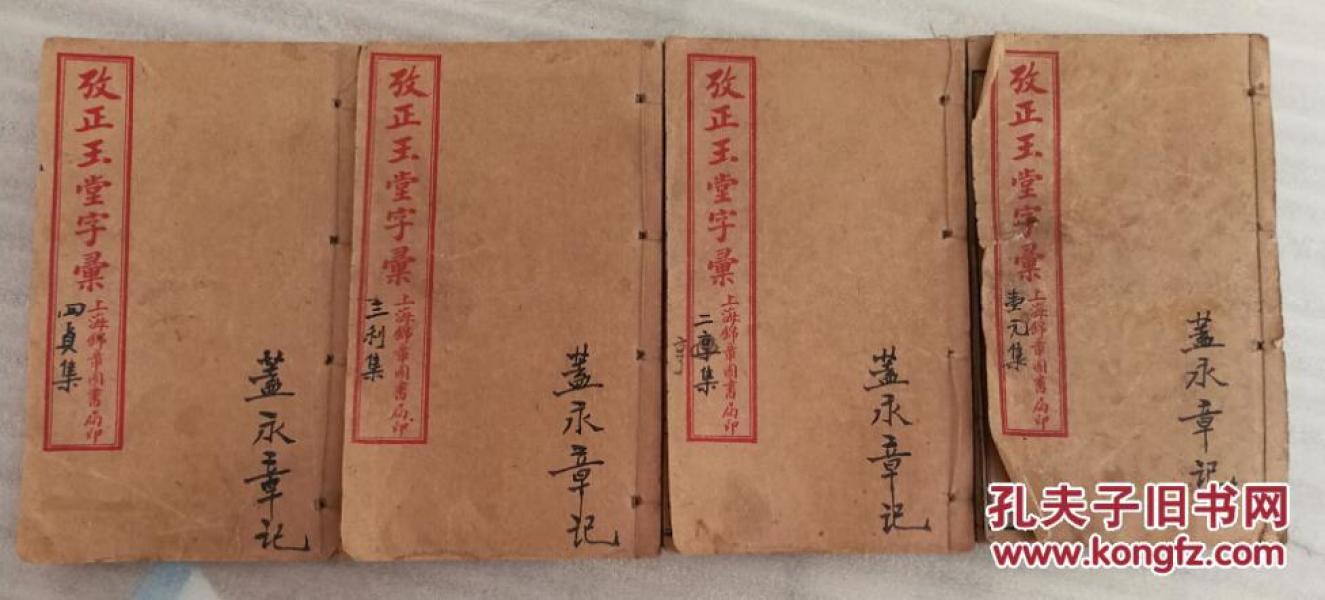 攷正玉堂字彙
上海錦章圖書局印
四貞集
蓋永章记
攷正玉堂字彙
上海錦章圖書局印
三利集
蓋永章记
攷正玉堂字彙
上海錦章圖書局印
二章集
亨
蓋永章记
攷正玉堂字彙
上海錦章圖書局印
壹元集
蓋永章记
孔夫子旧书网
www.kongfz.com